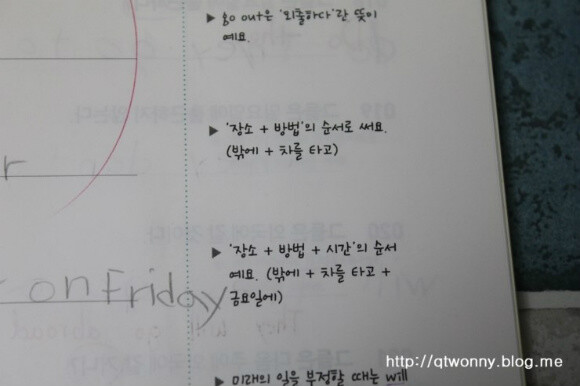 ▶ go out은 '외출하다'란 뜻이
예요.
▶ '장소 + 방법'의 순서로 써요.
(밖에 + 차를 타고)
r
▶ '장소 + 방법 + 시간'의 순서
예요. (밖에 + 차를 타고 +
금요일에)
on Friday
▶ 미래의 일을 부정할 때는 will
http://qtwonny.blog.me